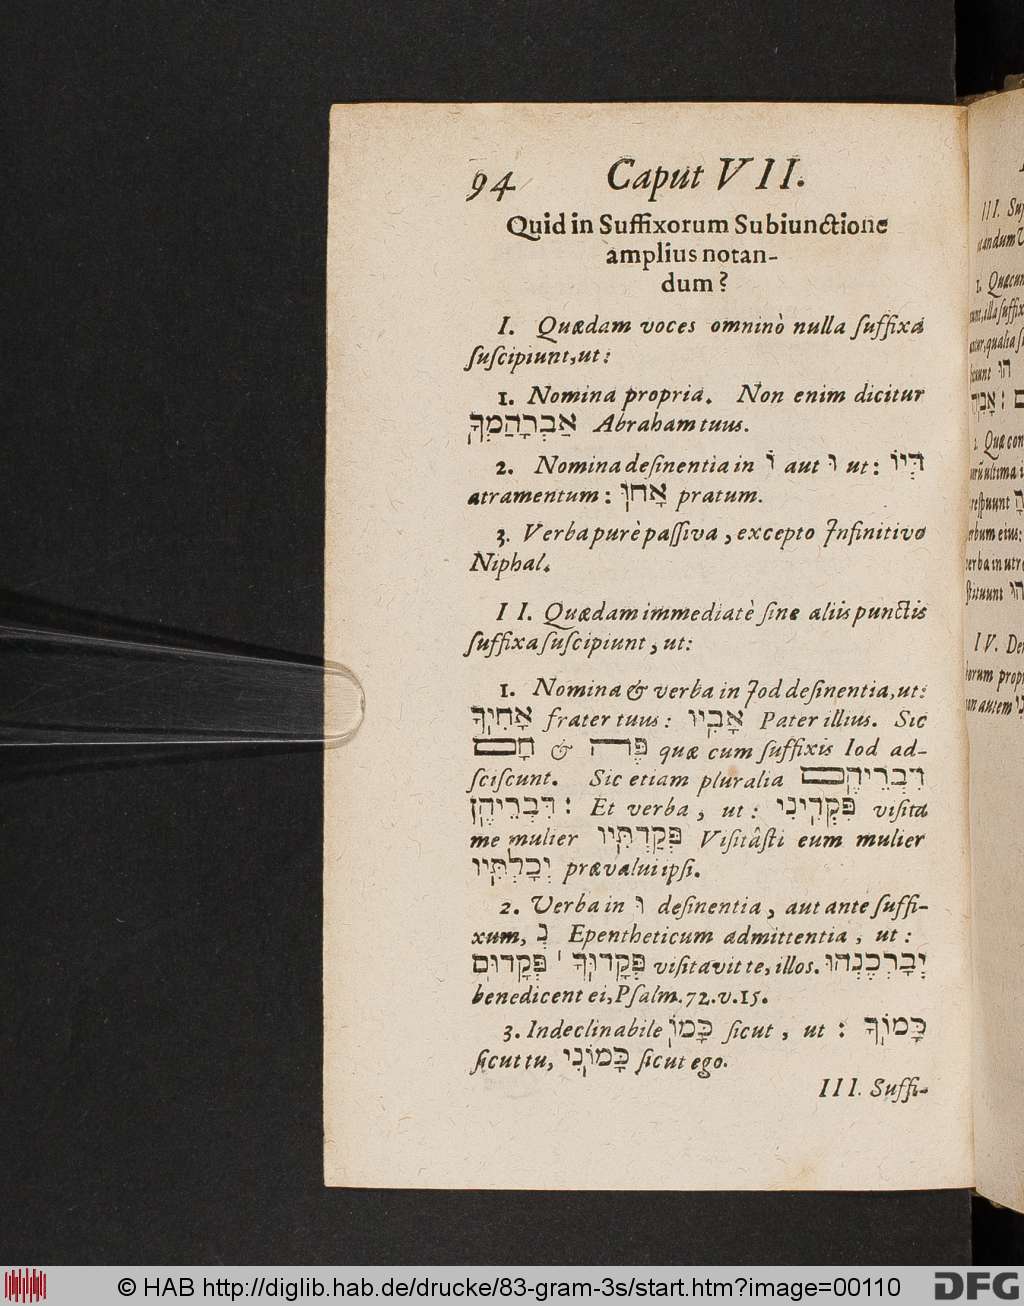 94 Caput VII.
Quid in Suffixorum Subiunctione
amplius notan-
dum?
I. Quædam voces omninò nulla ſuffixa
ſuſcipiunt, ut:
1. Nomina propria. Non enim dicitur
אַבְרָהַמְךָ Abraham tuus.
2. Nomina deſinentia in וֹ aut וּ ut: דְּיוֹ
atramentum: אָחוּ pratum.
3. Verba purè paſſiva, excepto Infinitivo
Niphal.
II. Quædam immediatè ſine aliis punctis
ſuffixa ſuſcipiunt, ut:
1. Nomina & verba in Jod deſinentia, ut:
אָחִיךָ frater tuus: אָבִיו Pater illius. Sic
חָם & פֶּה quæ cum ſuffixis Iod ad-
ſciſcunt. Sic etiam pluralia דִּבְרֵיהֶם
דִּבְרֵיהֶן: Et verba, ut: פִּקְדִינִי viſita
me mulier פְּקַדְתִּיו Viſitâſti eum mulier
יְכָלְתִּיו prævalui ipſi.
2. Verba in וּ deſinentia, aut ante ſuffi-
xum, נְ Epentheticum admittentia, ut:
פְּקָדוּךָ ' פְּקָדוּם viſitavit te, illos. יְבָרְכֶנְהוּ
benedicent ei, Pſalm. 72. v. 15.
3. Indeclinabile כָּמוֹ ſicut, ut: כָּמוֹךָ
ſicut tu, כָּמוֹנִי ſicut ego.
III. Suffi-
III. Suf
1. Quæcun
הו
2. Quæ con
IV. De
© HAB http://diglib.hab.de/drucke/83-gram-3s/start.htm?image=00110
DFG